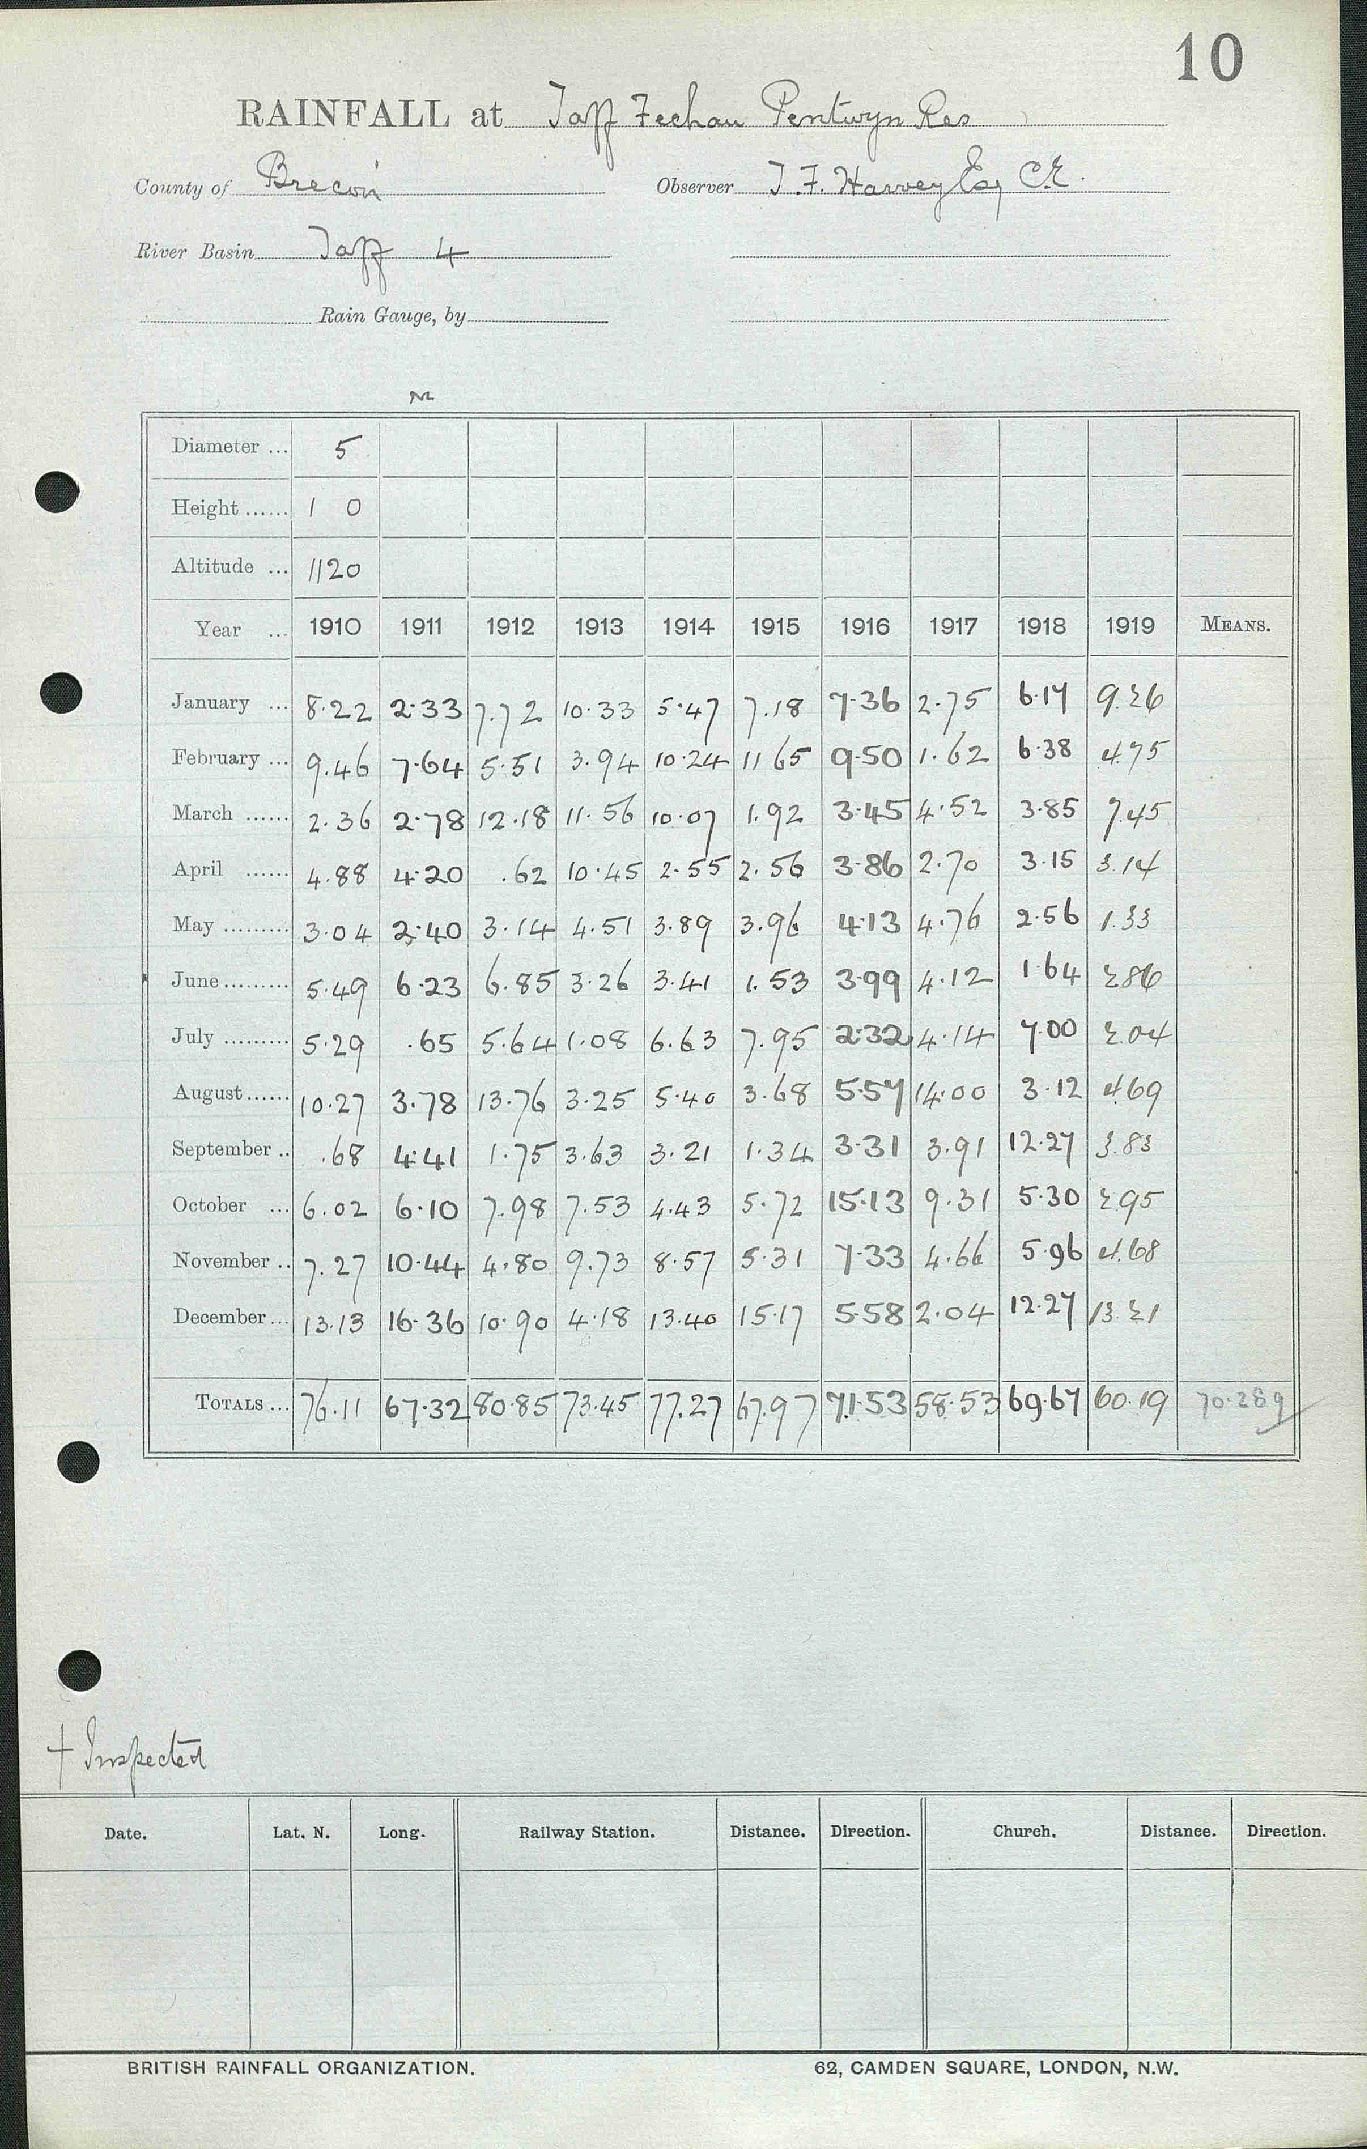 10
RAINFALL at Taff Fechan Pentwyn Res
County of Brecon Observer T. F. Harvey Esq C.E.
River Basin Taff 4
Rain Gauge, by
Diameter ... 5
Height ...... 1 0
Altitude ... 1120
Year ... 1910 1911 1912 1913 1914 1915 1916 1917 1918 1919 MEANS.
January ... 8.22 2.33 7.72 10.33 5.47 7.18 7.36 2.75 6.17 9.26
February ... 9.46 7.64 5.51 3.94 10.24 11 65 9.50 1.62 6.38 4.75
March ...... 2.36 2.78 12.18 11.56 10.07 1.92 3.45 4.52 3.85 7.45
April ...... 4.88 4.20 .62 10.45 2.55 2.56 3.86 2.70 3.15 3.14
May ......... 3.04 2.40 3.14 4.51 3.89 3.96 4.13 4.76 2.56 1.33
June ......... 5.49 6.23 6.85 3.26 3.41 1.53 3.99 4.12 1.64 2.86
July ......... 5.29 .65 5.64 1.08 6.63 7.95 2.32 4.14 7.00 2.04
August ...... 10.27 3.78 13.76 3.25 5.40 3.68 5.57 14.00 3.12 4.69
September .. .68 4.41 1.75 3.63 3.21 1.34 3.31 3.91 12.27 3.83
October ... 6.02 6.10 7.98 7.53 4.43 5.72 15.13 9.31 5.30 2.95
November .. 7.27 10.44 4.80 9.73 8.57 5.31 7.33 4.66 5.96 4.68
December ... 13.13 16.36 10.90 4.18 13.40 15.17 5.58 2.04 12.27 13.21
TOTALS ... 76.11 67.32 80.85 73.45 77.27 67.97 71.53 58.53 69.67 60.19 70.289
+ Inspected
Date. Lat. N. Long. Railway Station. Distance. Direction. Church. Distance. Direction.
BRITISH RAINFALL ORGANIZATION. 62, CAMDEN SQUARE, LONDON, N.W.